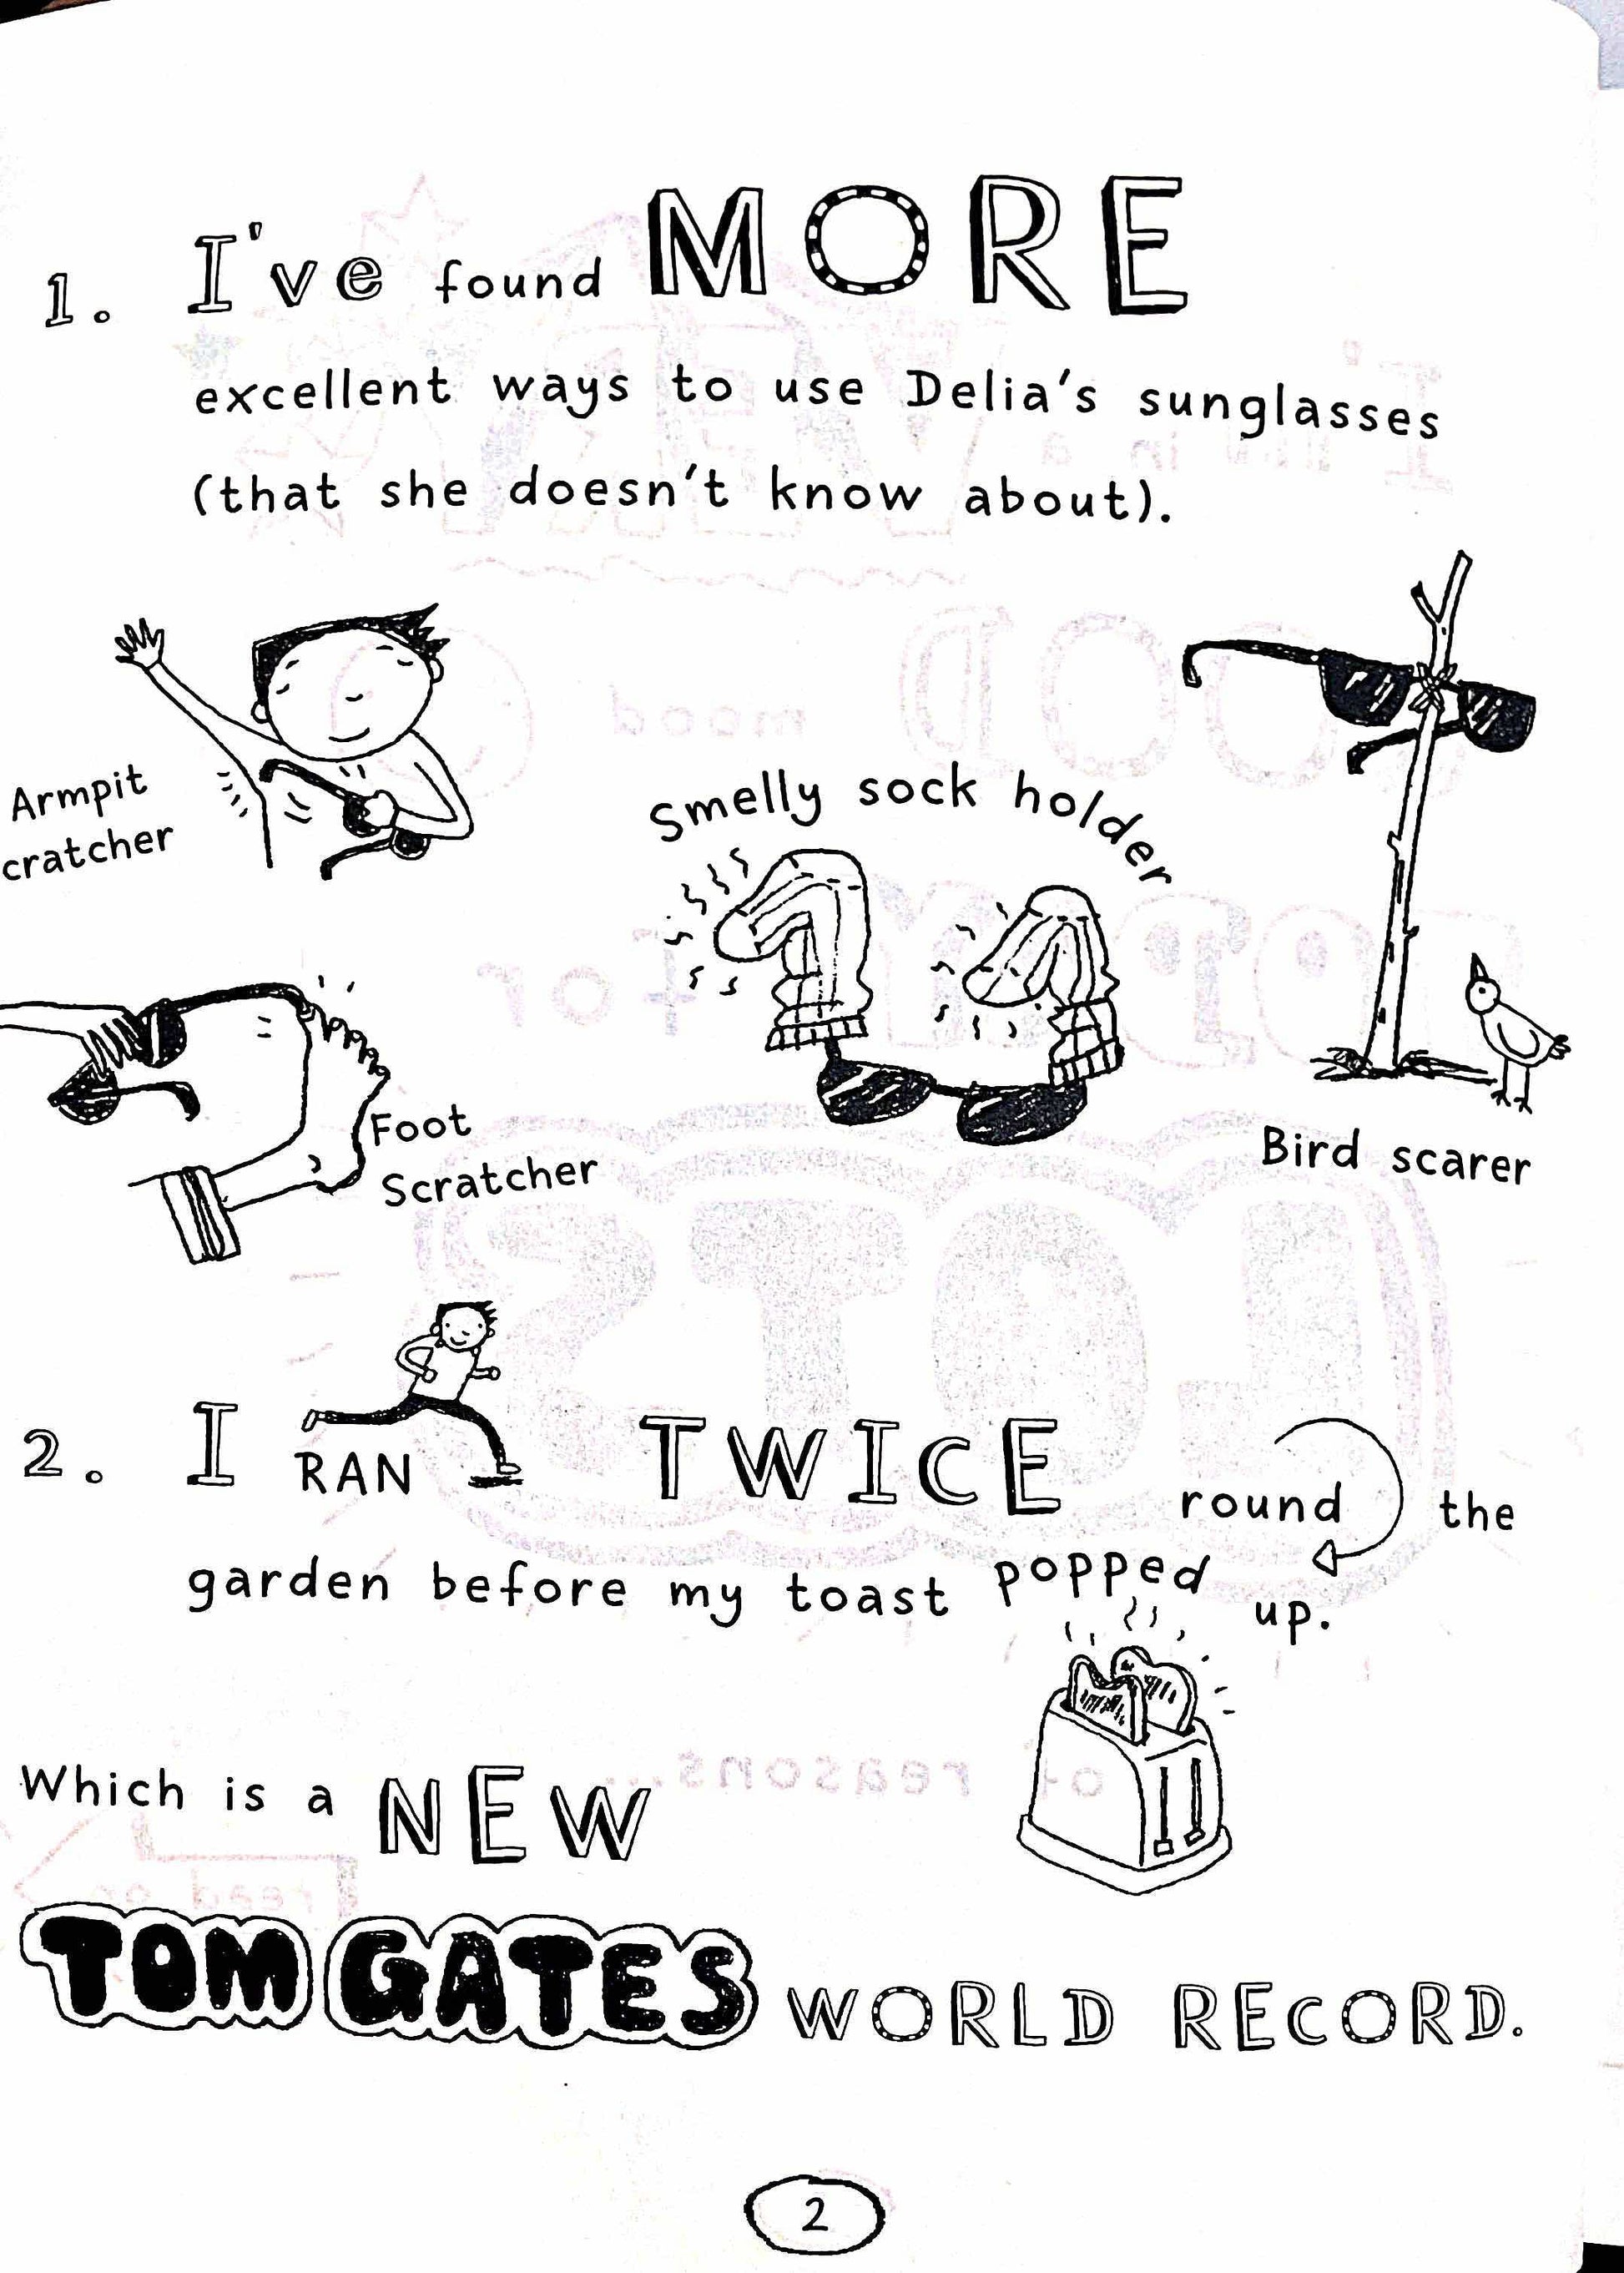 1. I've found MORE
excellent ways to use Delia's sunglasses
(that she doesn't know about).
Armpit
cratcher
Smelly sock holder
Foot
Scratcher
Bird scarer
2. I RAN TWICE round the
garden before my toast popped up.
Which is a NEW
TOM GATES WORLD RECORD.
2